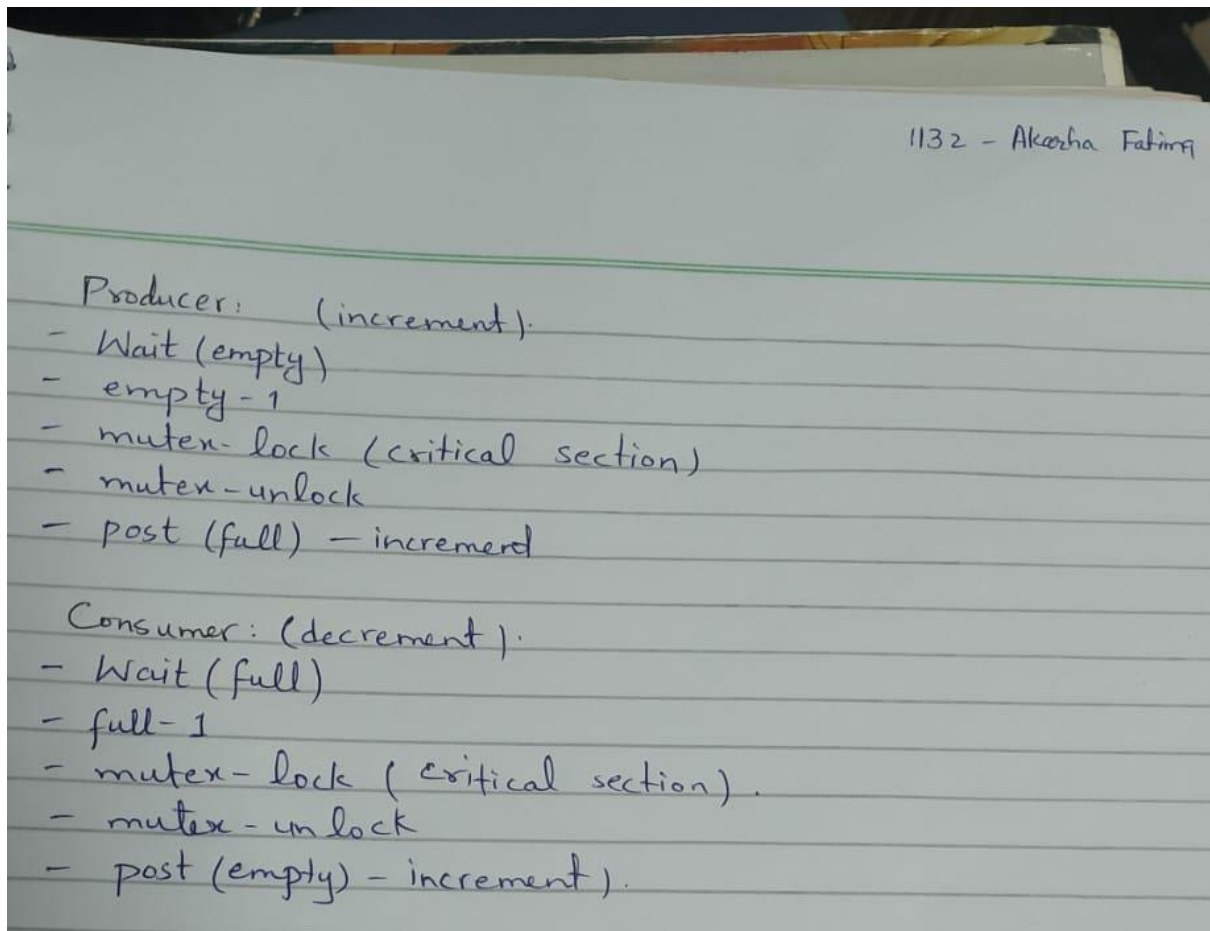 1132 - Akasha Fatima
Producer: (increment).
- Wait (empty)
- empty - 1
- mutex - lock (critical section)
- mutex - unlock
- post (full) - increment
Consumer: (decrement).
- Wait (full)
- full - 1
- mutex - lock (critical section).
- mutex - unlock
- post (empty) - increment).